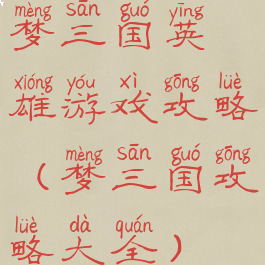 mèng sān guó yīng
梦三国英
xióng yóu xì gōng lüè
雄游戏攻略
mèng sān guó gōng
(梦三国攻
lüè dà quán
略大全)